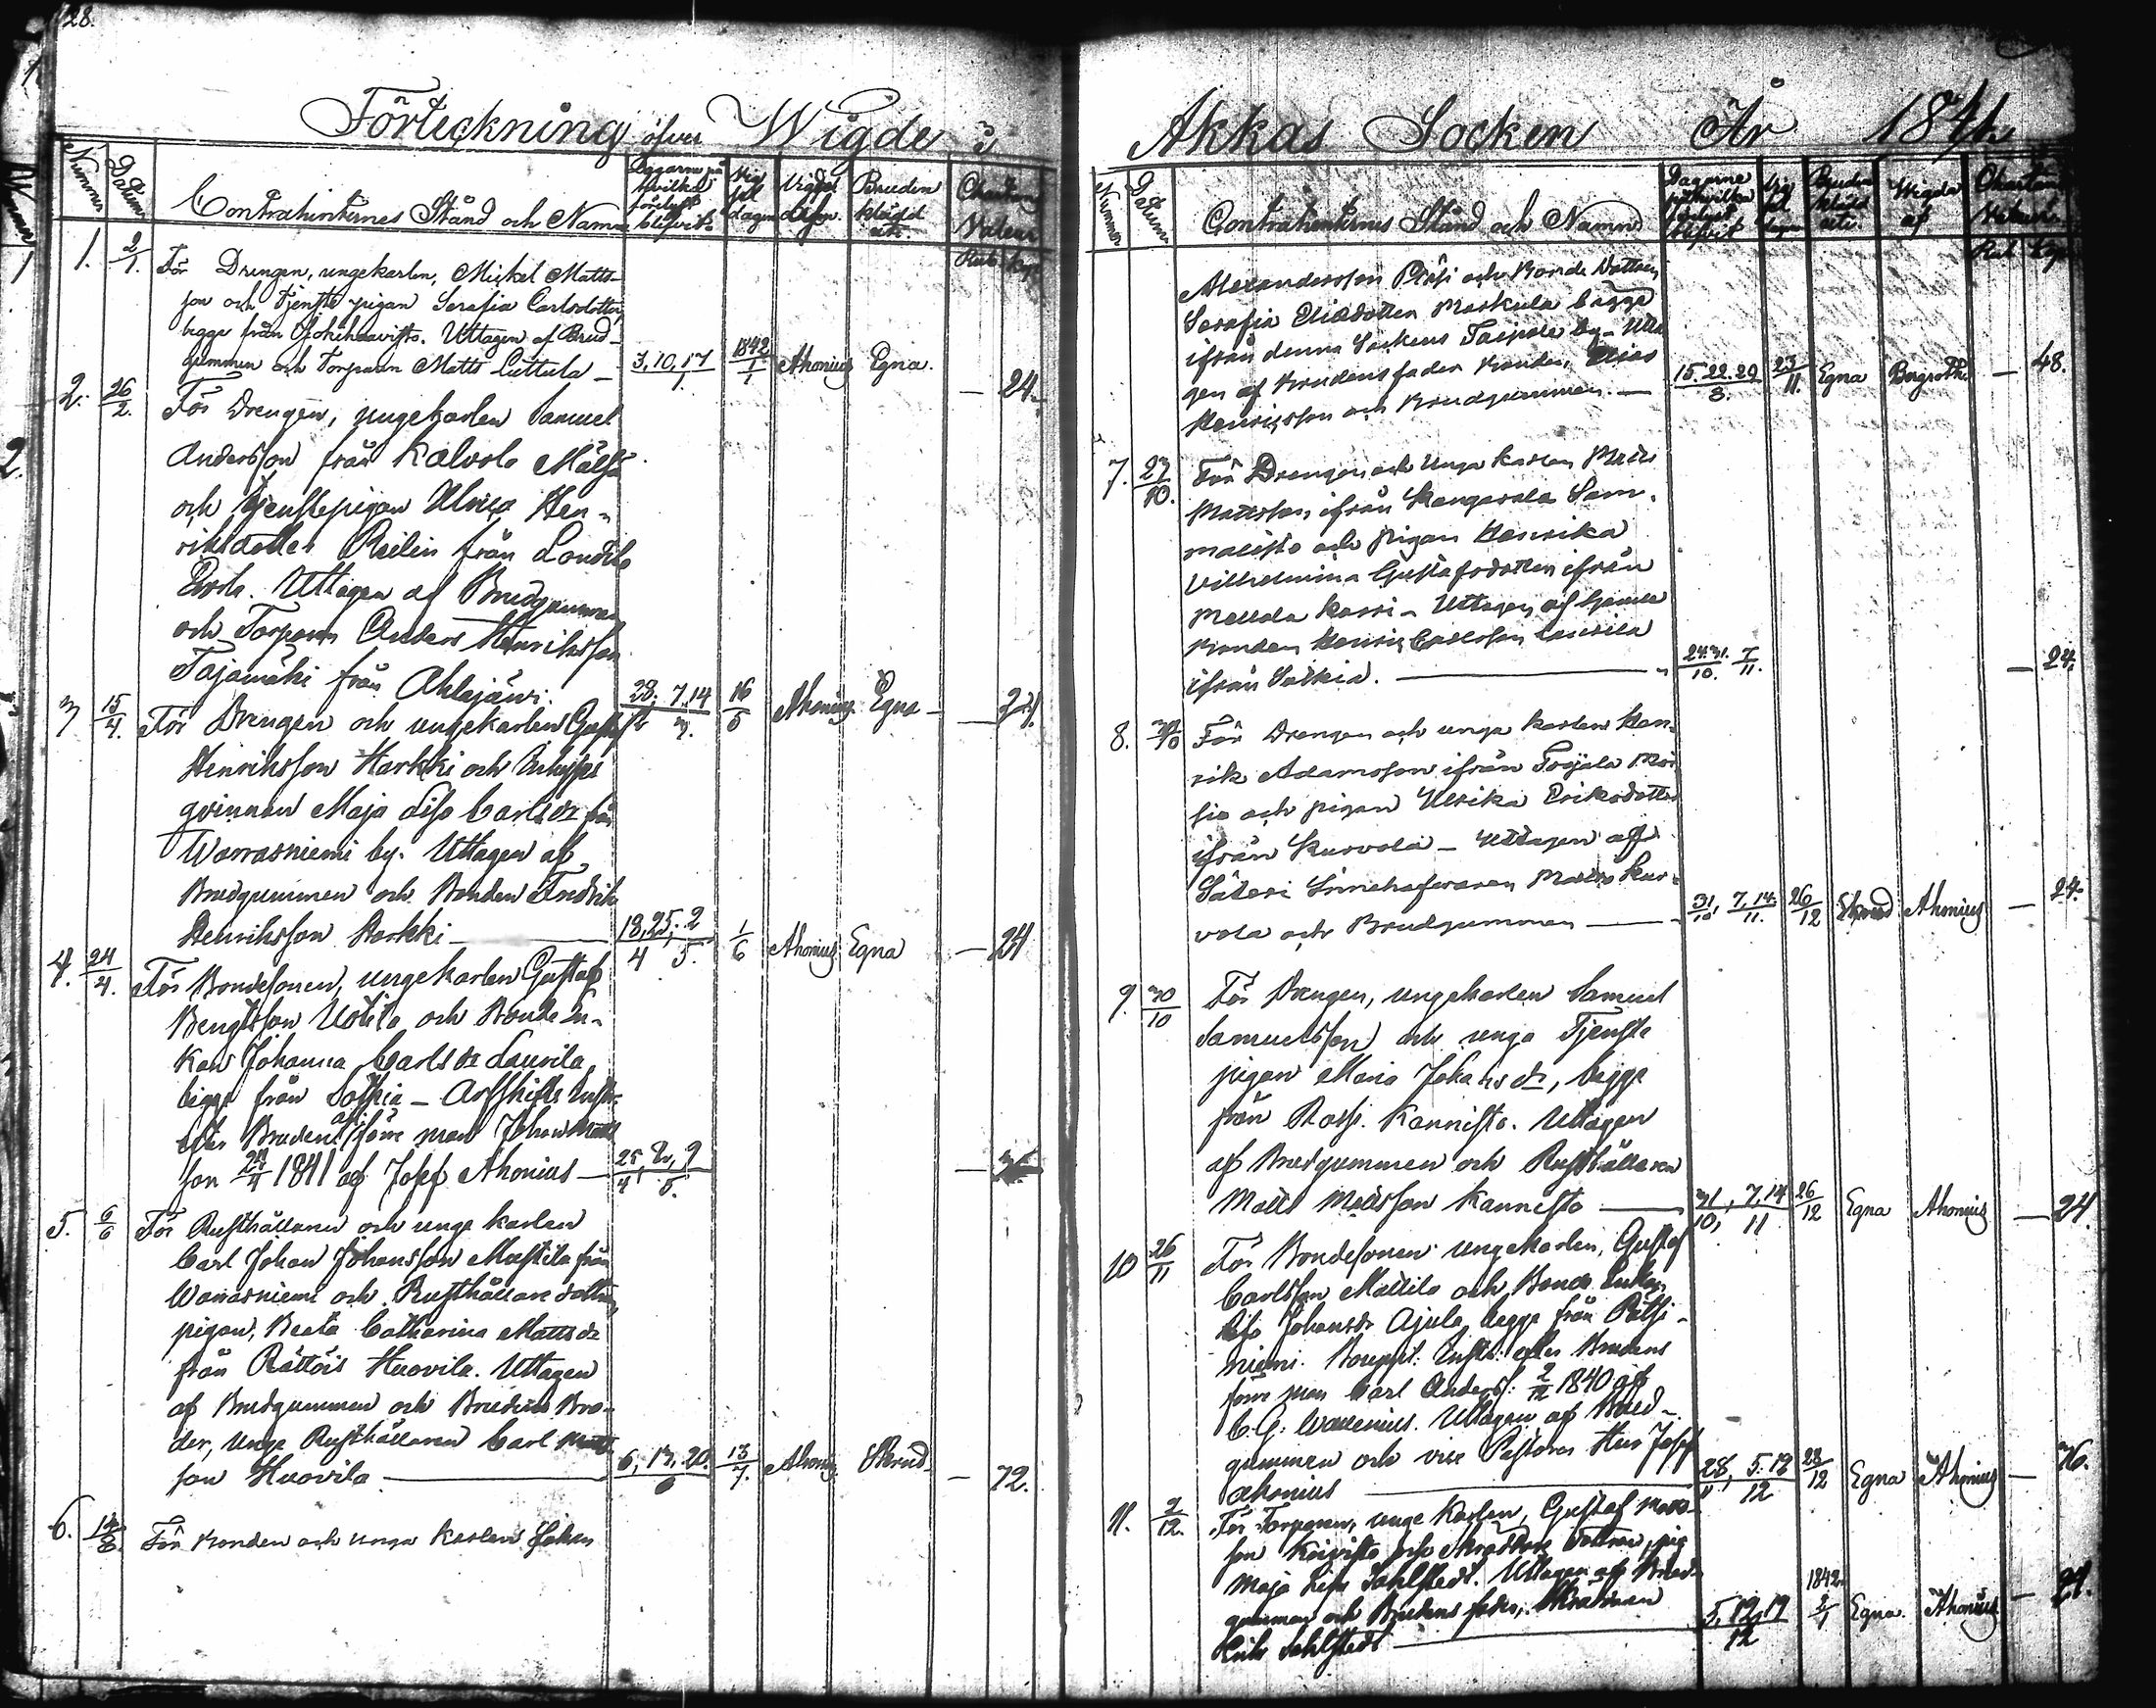 128.
Förteckning öfver Wigde i
Nummer Datum Contrahenternes Stånd och Namn Dagarne på hvilka förelyst blifvit Vigsel dagen Vigsel Brudens klädsel Chartan Valeur
Rub. Kop
1. 2/1. För Drengen, ungekarlen, Mickel Matts-
son och Tjenste pigan Serafia Carlsdotter,
begge från Uttagen af Brud-
gummen och Torparen Matts Luttula – 3, 10, 17/1 1842 1/1 Ahonius Egna. – 24.
2. 26/2. För Drengen, ungekarlen Samuel
Andersson från Kalvola
och Tjenstepigan Ulrica Hen-
riksdotter Reilin från
Uttagen af Brudgummen
och Torparen Anders Henriksson
Tajamäki från Ahlajärvi. 28. 7, 14 16/5 Ahonius Egna – 24.
3 15/4. För Drengen och ungekarlen Gustaf
Henriksson Harkki och Inhyses
qvinnan Maja Lisa Carlsdr från
Warrasniemi by. Uttagen af
Brudgummen och Bonden Fredrik
Henriksson Harkki – 18, 25. 2/4 5. 1/6 Ahonius Egna – 24
4. 24/4. För Bondesonen, ungekarlen Gustaf
Bengtsson Uotila och Bonde En-
kan Johanna Carlsdr Laurila,
begge från Sotkia – Arfskifte
efter Brudens aflidne förre man Johan Matts
son 1841 af Josef Ahonius – 25, 2, 9/4 5.
5. 6/6 För Rusthållaren och unge karlen
Carl Johan Johansson Mustila från
Warrasniemi och Rusthållare dottren,
pigan, Beata Catharina Mattsdr
från Rättöis Huovila. Uttagen
af Brudgummen och Brudens Bro-
der, unge Rusthållaren Carl Matts
son Huovila – 6, 13, 20./6 13/7. Ahonius Skrud – 72.
6. 14/8. För Bonden och unga Karlen Johan
Akkas Socken År 1841
Nummer Datum Contrahenternes Stånd och Namn Dagarne på hvilka förelyst blifvit Vigsel dagen Brudens klädsel Wigda af Chartan Valeur
Rub. Kop
Alexandersson Präsi och Bonde Dottren
Serafia Eliædotter Markula bägge
ifrån denna Sockens Taipale by – Utta
gen af Brudens fader Bonden Elias
Henricsson och Brudgummen. – 15. 22. 29/8. 23/11. Egna Bergroth – 48.
7. 27/10. För Drengen och Unga karlen Matts
Mattsson ifrån Kangasala Sam-
malisto och pigan Henrika
Vilhelmina Gustafsdotter ifrån
Mellola Kassi – Uttagen af Gamla
Bonden Henric Carlsson Laurila
ifrån Sotkia. – 24. 31./10. 7/11. – 24.
8. 30/10 För Drengen och unga karlen Hen-
rik Adamsson ifrån
och pigan Ulrika Eriksdotter
ifrån Kurvola – Uttagen af
Säteri Innehafvaren Matts Kur-
vola och Brudgummen – 31/10, 7, 14./11. 26/12 Skrud Ahonius – 24.
9. 30/10 För Drengen, ungekarlen Samuel
Samuelsson och unga Tjenste
pigan Maria Johansdr, begge
från Kannisto. Uttagen
af Brudgummen och Rusthållaren
Matts Mattsson Kannisto – 31/10, 7, 14/11 26/12 Egna Ahonius – 24.
10 26/11 För Bondesonen ungekarlen, Gustaf
Carlsson Mattila och Bonde Enkan
Lisa Johansdr Ajula, begge från Pätsi-
niemi. Bouppt: Instr: efter Brudens
förre man Carl Anders: 1840 af
C. G. Wallenius. Uttagen af Brud-
gummen och vice Pastoren Herr Josef
Ahonius – 28/11, 5. 12/12 28/12 Egna Ahonius – 76.
11. 2/12. För Torparen, unge Karlen, Gustaf Matts-
son Koivisto och Skräddare Dottren, pig
Maja Lisa Sahlstedt. Uttagen af Brud-
gumman och Brudens fader, Skräddaren
Sahlstedt – 5, 12, 19/12 1842 2/1 Egna. Ahonius – 24.